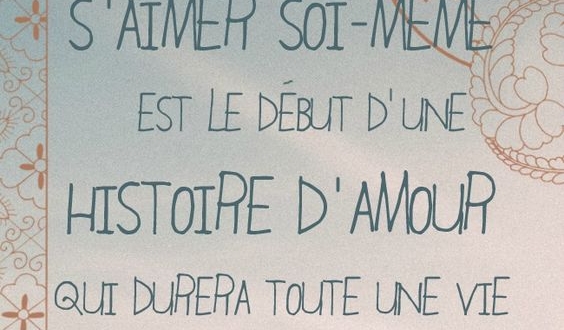 S'AIMER SOI-MEME
EST LE DÉBUT D'UNE
HISTOIRE D'AMOUR
QUI DURERA TOUTE UNE VIE